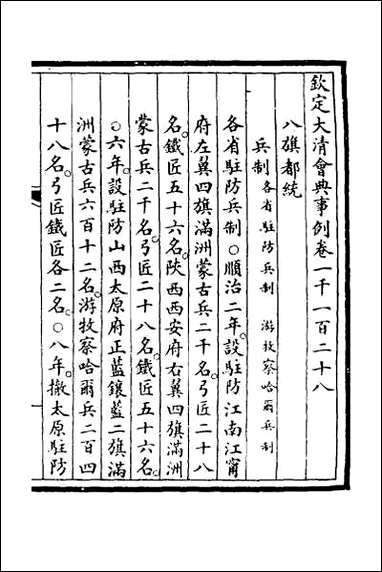 欽定大清會典事例卷一千一百二十八
八旗都統
兵制 各省駐防兵制 游牧察哈爾兵制
各省駐防兵制○順治二年設駐防江南江甯
府左翼四旗滿洲蒙古兵二千名弓匠二十八
名鐵匠五十六名陝西西安府右翼四旗滿洲
蒙古兵二千名弓匠二十八名鐵匠五十六名
○六年設駐防山西太原府正藍鑲藍二旗滿
洲蒙古兵六百十二名游牧察哈爾兵二百四
十八名弓匠鐵匠各二名○八年撤太原駐防